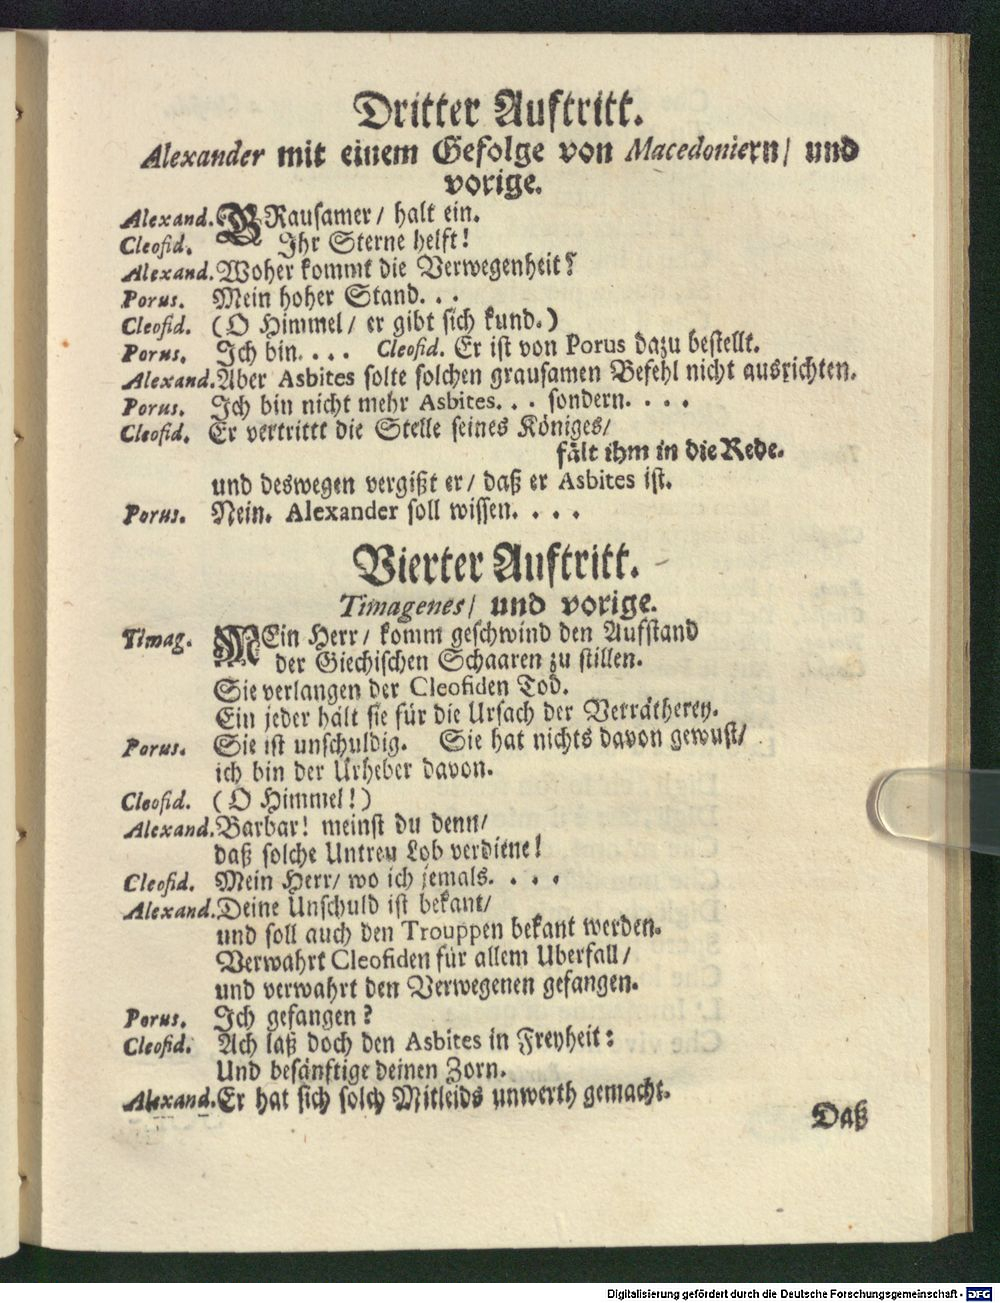 Dritter Auftritt.
Alexander mit einem Gefolge von Macedoniern/ und
vorige.
Alexand. GRausamer/ halt ein.
Cleofid. Ihr Sterne helft!
Alexand. Woher kommt die Verwegenheit?
Porus. Mein hoher Stand. . .
Cleofid. (O Himmel/ er gibt sich kund.)
Porus. Ich bin. . . . Cleofid. Er ist von Porus dazu bestellt.
Alexand. Aber Asbites solte solchen grausamen Befehl nicht ausrichten.
Porus. Ich bin nicht mehr Asbites. . . sondern. . . .
Cleofid. Er vertrittt die Stelle seines Königes/
fält ihm in die Rede.
und deswegen vergißt er/ daß er Asbites ist.
Porus. Nein. Alexander soll wissen. . . .
Vierter Auftritt.
Timagenes/ und vorige.
Timag. MEin Herr/ komm geschwind den Aufstand
der Giechischen Schaaren zu stillen.
Sie verlangen der Cleofiden Tod.
Ein jeder hält sie für die Ursach der Verrätherey.
Porus. Sie ist unschuldig. Sie hat nichts davon gewust/
ich bin der Urheber davon.
Cleofid. (O Himmel!)
Alexand. Barbar! meinst du denn/
daß solche Untreu Lob verdiene!
Cleofid. Mein Herr/ wo ich jemals. . . .
Alexand. Deine Unschuld ist bekant/
und soll auch den Trouppen bekant werden.
Verwahrt Cleofiden für allem Uberfall/
und verwahrt den Verwegenen gefangen.
Porus. Ich gefangen?
Cleofid. Ach laß doch den Asbites in Freyheit:
Und besänftige deinen Zorn.
Alexand. Er hat sich solch Mitleids unwerth gemacht.
Daß
Digitalisierung gefördert durch die Deutsche Forschungsgemeinschaft - DFG